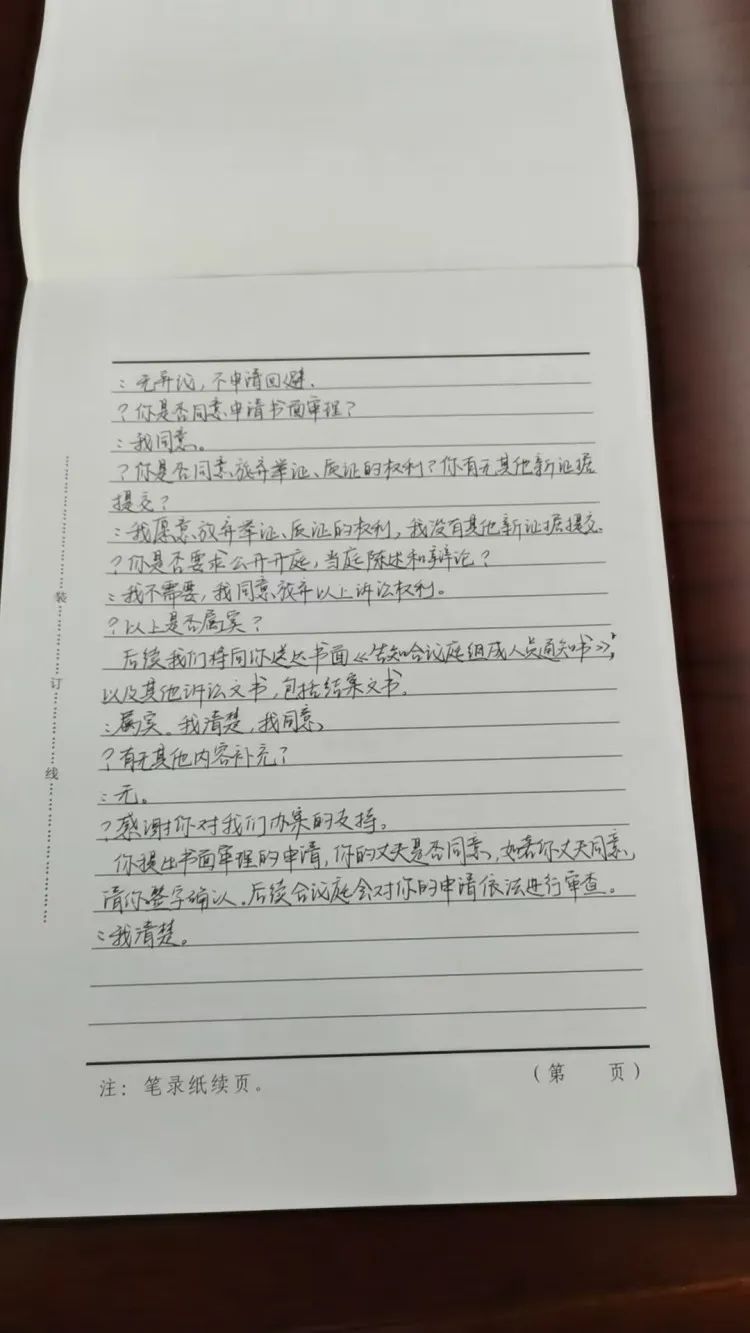 ：无异议，不申请回避．
？你是否同意申请书面审理？
：我同意。
？你是否同意放弃举证、质证的权利？你有无其他新证据
提交？
：我愿意放弃举证、质证的权利，我没有其他新证据提交．
？你是否要求公开开庭，当庭陈述和辩论？
：我不需要，我同意放弃以上诉讼权利。
？以上是否属实？
后续我们将向你送达书面《告知合议庭组成人员通知书》，
以及其他诉讼文书，包括结案文书．
：属实．我清楚，我同意，
？有无其他内容补充？
：无。
？感谢你对我们办案的支持。
你提出书面审理的申请，你的丈夫是否同意，如若你丈夫同意，
请你签字确认．后续合议庭会对你的申请依法进行审查。
：我清楚。
注：笔录纸续页。
（第 页）
装
订
线